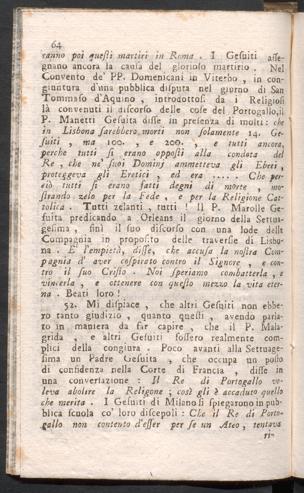 64
ranno poi questi martiri in Roma. I Gesuiti asse-
gnano ancora la causa del glorioso martirio. Nel
Convento de' PP. Domenicani in Viterbo, in con-
giuntura d'una pubblica disputa nel giorno di San
Tommaso d'Aquino, introdottosi da i Religiosi
là convenuti il discorso delle cose del Portogallo, il
P. Manetti Gesuita disse in presenza di molti: che
in Lisbona sarebbero morti non solamente 14. Ge-
suiti, ma 100., e 200., e tutti ancora,
perchè tutti si erano opposti alla condotta del
Re, che ne' suoi Dominj ammetteva gli Ebrei,
proteggeva gli Eretici, ed era ..... Che per-
ciò tutti si erano fatti degni di morte, mo-
strando zelo per la Fede, e per la Religione Cat-
tolica. Tutti zelanti, tutti! Il P. Marolle Ge-
suita predicando a Orleans il giorno della Settua-
gesima, finì il suo discorso con una lode della
Compagnia in proposito delle traversie di Lisbo-
na. E l'empietà, disse, che accusa la nostra Com-
pagnia d' aver cospirato contro il Signore, e con-
tro il suo Cristo. Noi speriamo combatterla, e
vincerla, e ottenere con questo mezzo la vita eter-
na. Beati loro!
52. Mi dispiace, che altri Gesuiti non ebbe-
ro tanto giudizio, quanto questi, avendo parla-
to in maniera da far capire, che il P. Mala-
grida, e altri Gesuiti fossero realmente com-
plici della congiura. Poco avanti alla Settuage-
sima un Padre Gesuita, che occupa un posto
di confidenza nella Corte di Francia, disse in
una conversazione: Il Re di Portogallo vo-
leva abolire la Religone; così gli è accaduto quello
che merita. I Gesuiti di Milano si spiegarono in pub-
blica scuola co' loro discepoli: Che il Re di Porto-
gallo non contento d'esser per se un Ateo, tentava